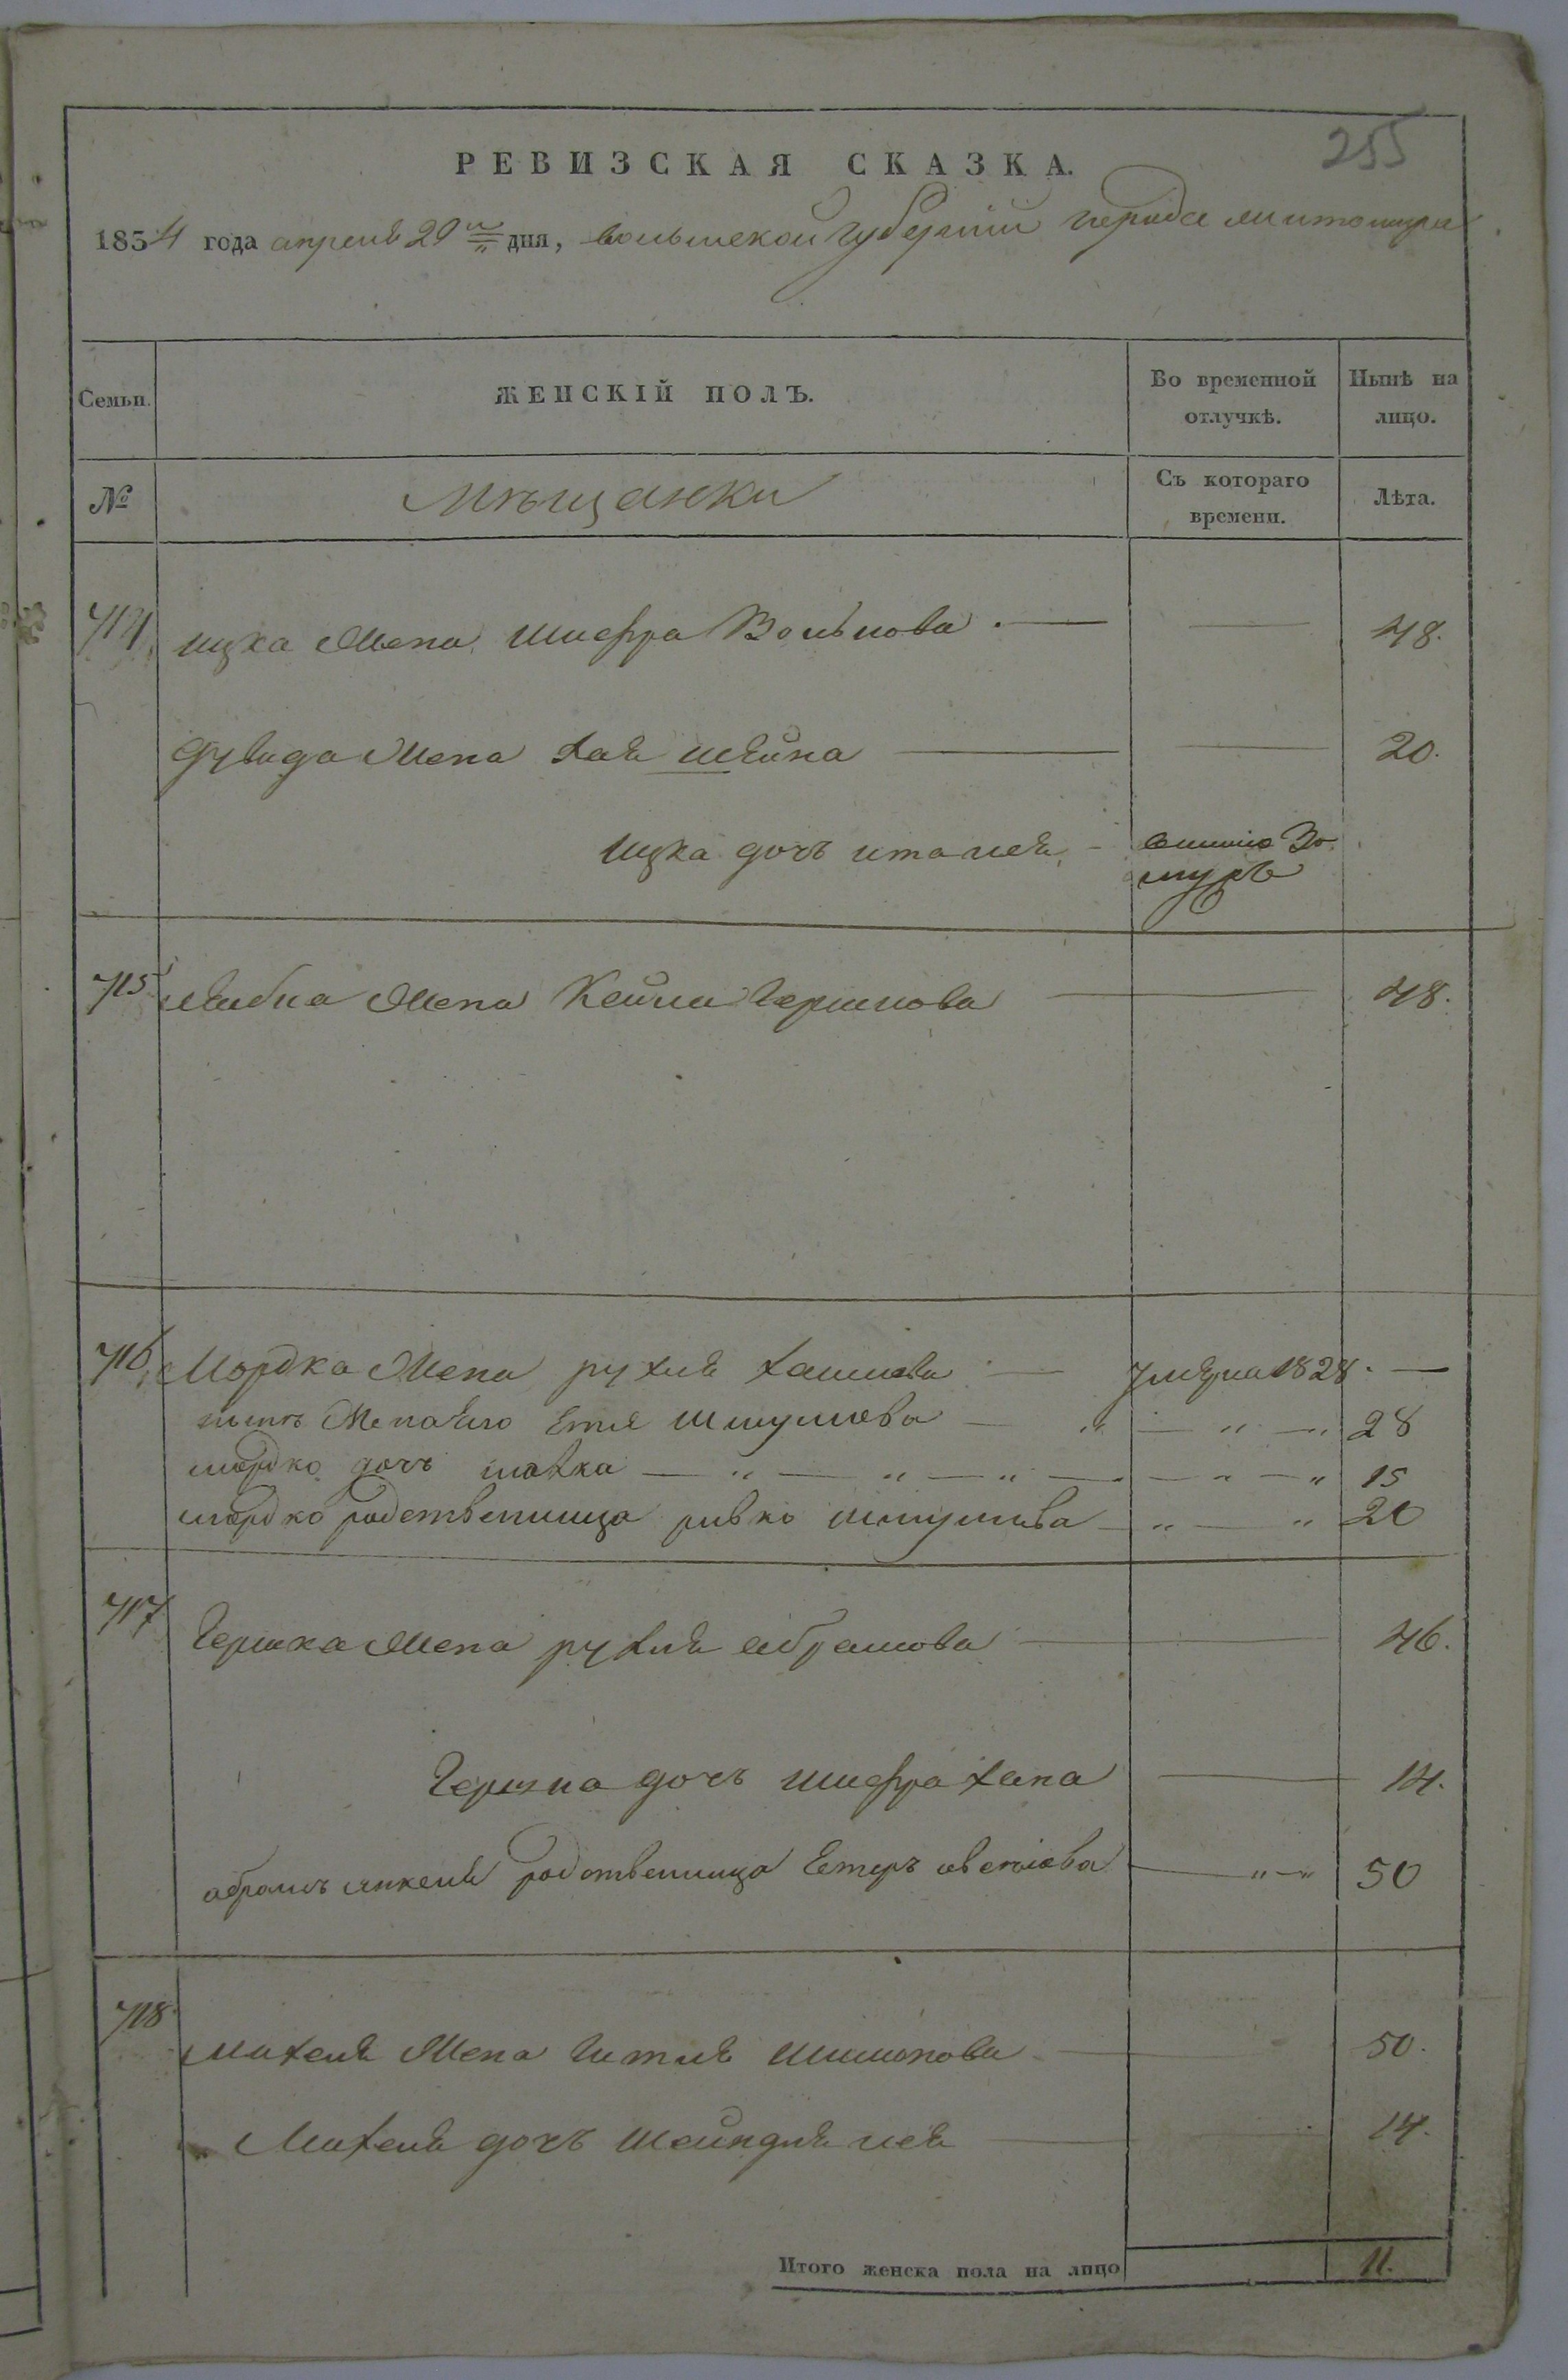 255
РЕВИЗСКАЯ СКАЗКА.
1854 года апреля 29го дня, волынской губернии города житомира
Семьи. ЖЕНСКІЙ ПОЛЪ. Во временной отлучкѣ. Нынѣ на лицо.
№ Мѣщанки Съ котораго времени. Лѣта.
714 ицка жена шифра Вольѳова 48.
дувида жена хая шейна 20.
ицка дочъ ита лея
715 лейбы жена Кейла Гершкова 48.
716 Мордка жена рухля хаимова умерла 1828.
жена Етя Шмулева 28
мордко дочъ 15
мордко родственница ривко шмулева 20
717 Гершка жена рухля абрамова 46.
Гершка дочъ шифра хана 14.
абрамъ янкеля родственница Естеръ 50
718 михеля жена гитля шимонова 50.
Михеля дочъ шейндля лея 14.
Итого женска пола на лицо 11.